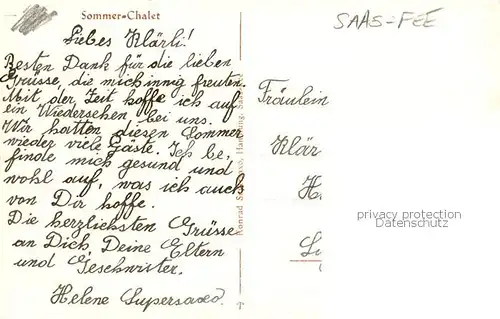 Sommer-Chalet
SAAS-FEE
Liebes Klärli!
Besten Dank für die lieben
Grüsse, die mich innig freuten.
Mit der Zeit hoffe ich auf
ein Wiedersehen bei uns.
Wir hatten diesen Sommer
wieder viele Gäste. Ich be,
finde mich gesund und
wohl auf, was ich auch
von Dir hoffe.
Die herzlichsten Grüsse
an Dich, Deine Eltern
und Geschwister.
Helene Supersaxo.
Konrad
Fräulein
Klär
privacy protection
Datenschutz